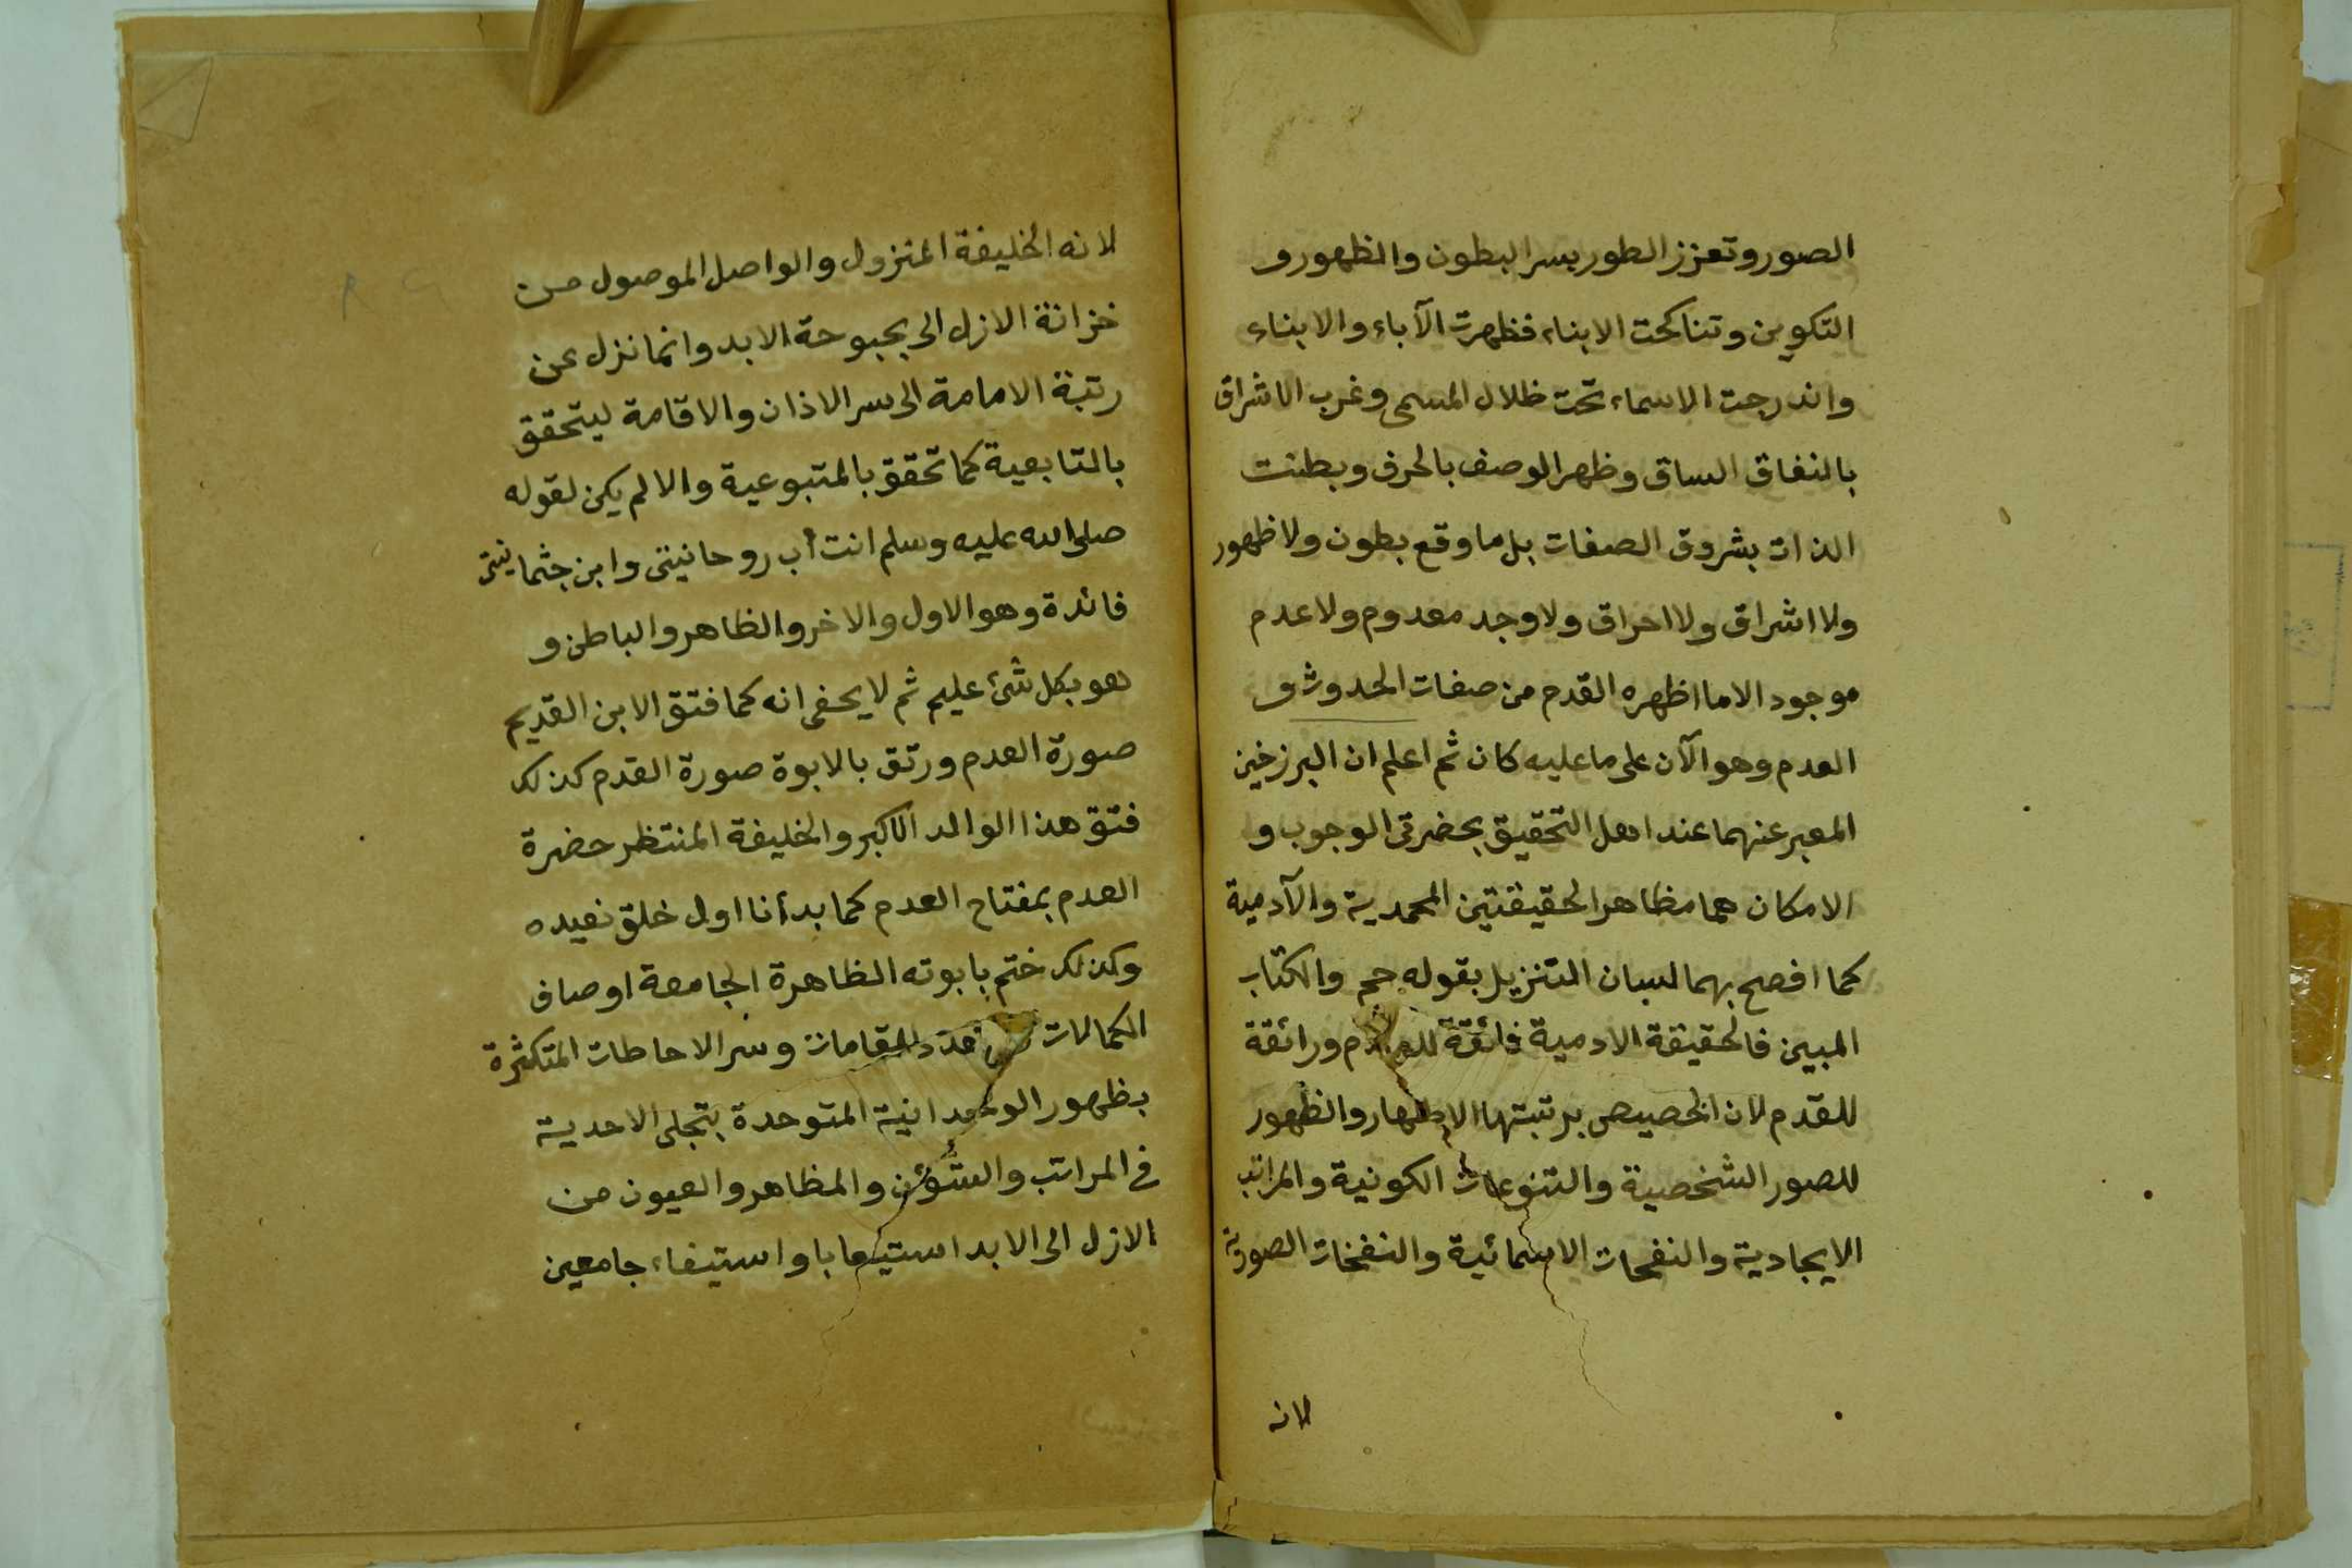 الصور وتعزز الطور بسر البطون والظهور و
التكوين وتناكحت الابناء فظهرت الآباء والابناء
واندرجت الاسماء تحت ظلال المسمى وغرب الاشراق
بالنفاق الساق وظهر الوصف بالحرف وبطنت
الذات بشروق الصفات بل ما وقع بطون ولا ظهور
ولا اشراق ولا احراق ولا وجد معدوم ولا عدم
موجود الا ما اظهره القدم من صفات الحدوث و
العدم وهو الآن على ما عليه كان ثم اعلم ان البرزخين
المعبر عنهما عند اهل التحقيق بحضرتى الوجوب و
الامكان هما مظاهر الحقيقتين المحمدية والآدمية
كما افصح بهما لسان التنزيل بقوله حم والكتاب
المبين فالحقيقة الادمية فائقة ورائقة
للقدم لان الخصيص برتبتها الاظهار والظهور
للصور الشخصية والتنوعات الكونية والمراتب
الايجادية والنفحات الاسمائية والنفخات الصورية
لانه
لانه الخليفة المنزول والواصل الموصول من
خزانة الازل الى بحبوحة الابد وانما نزل عن
رتبة الامامة الى سر الاذان والاقامة ليتحقق
بالتابعية كما تحقق بالمتبوعية والا لم يكن لقوله
صلى الله عليه وسلم انت أب روحانيتى وابن جثمانيتى
فائدة وهو الاول والاخر والظاهر والباطن و
هو بكل شئ عليم ثم لا يخفى انه كما فتق الابن القديم
صورة العدم ورتق بالابوة صورة القدم كذلك
فتق هذا الوالد الاكبر والخليفة المنتظر حضرة
العدم بمفتاح العدم كما بدأنا اول خلق نعيده
وكذلك ختم بابوته الظاهرة الجامعة اوصاف
الكمالات المقامات وسر الاحاطات المتكثرة
بظهور الوحدانية المتوحدة بتجلى الاحدية
فى المراتب والشؤن والمظاهر والعيون من
الازل الى الابد استيعابا واستيفاء جامعين